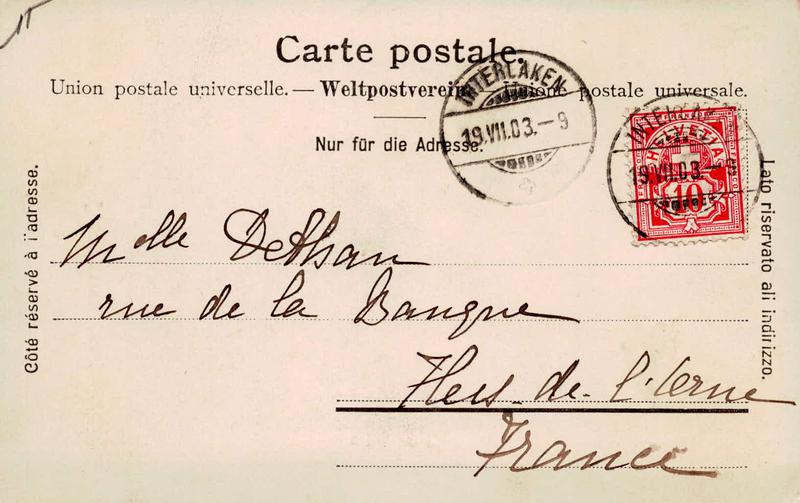 Carte postale.
Union postale universelle. — Weltpostverein — Unione postale universale.
Nur für die Adresse.
INTERLAKEN
19.VII.03.-9
INTERLAKEN
19.VII.03.-9
HELVETIA
10
Côté réservé à l'adresse.
Lato riservato all indirizzo.
Melle Dethan
rue de la Banque
Flers-de-l'Orne
France